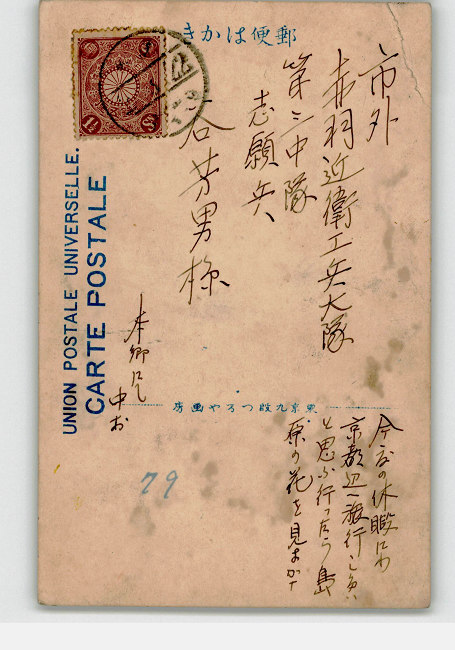 郵便はかき
市外
赤羽近衛工兵大隊
第三中隊
志願兵
谷芳男様
本郷にて
UNION POSTALE UNIVERSELLE.
CARTE POSTALE
東京九段つるや画房
今度の休暇には
京都辺へ旅行
と思ふ行ったら島
原の花を見
79
1½ Sn